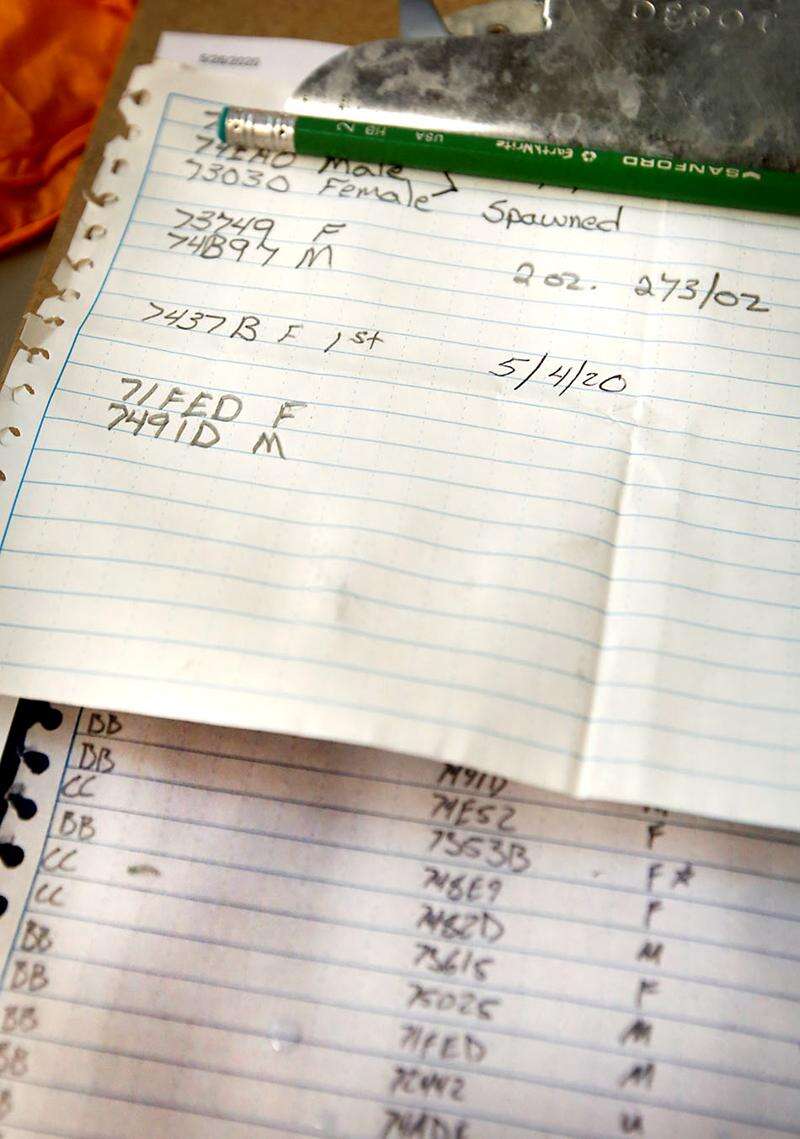 5/28/2020
DEPOT
SANFORD EarthWrite USA HB 2
74EA0 Male
73030 Female > Spawned
73749 F
74B97 M 2 oz. 273/oz
7437B F 1st
5/4/20
71FED F
7491D M
BB 7491D M
BB 74E52 F
CC 7353B F *
BB 748E9 F
CC 7482D M
CC 73615 F
BB 75025 M
BB 71FED M
BB 72442 U
BB 74ADE